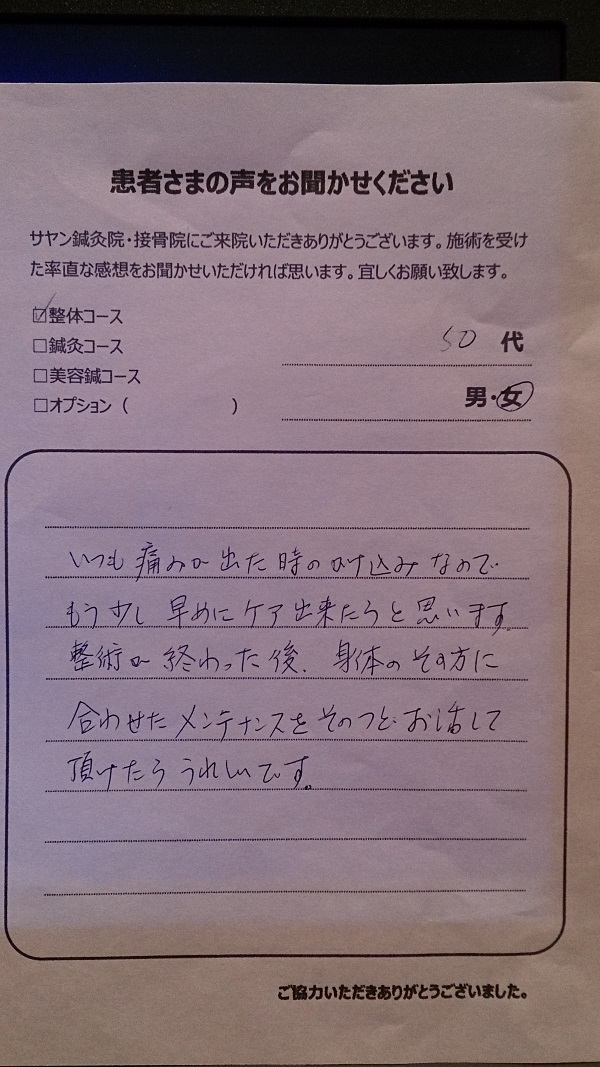 患者さまの声をお聞かせください
サヤン鍼灸院・接骨院にご来院いただきありがとうございます。施術を受け
た率直な感想をお聞かせいただければ思います。宜しくお願い致します。
☑整体コース
□鍼灸コース
50 代
□美容鍼コース
男・女
□オプション（ ）
いつも痛みが出た時のかけ込みなので
もう少し早めにケア出来たらと思います。
整術が終わった後、身体のその方に
合わせたメンテナンスをそのつどお話して
頂けたらうれしいです。
ご協力いただきありがとうございました。